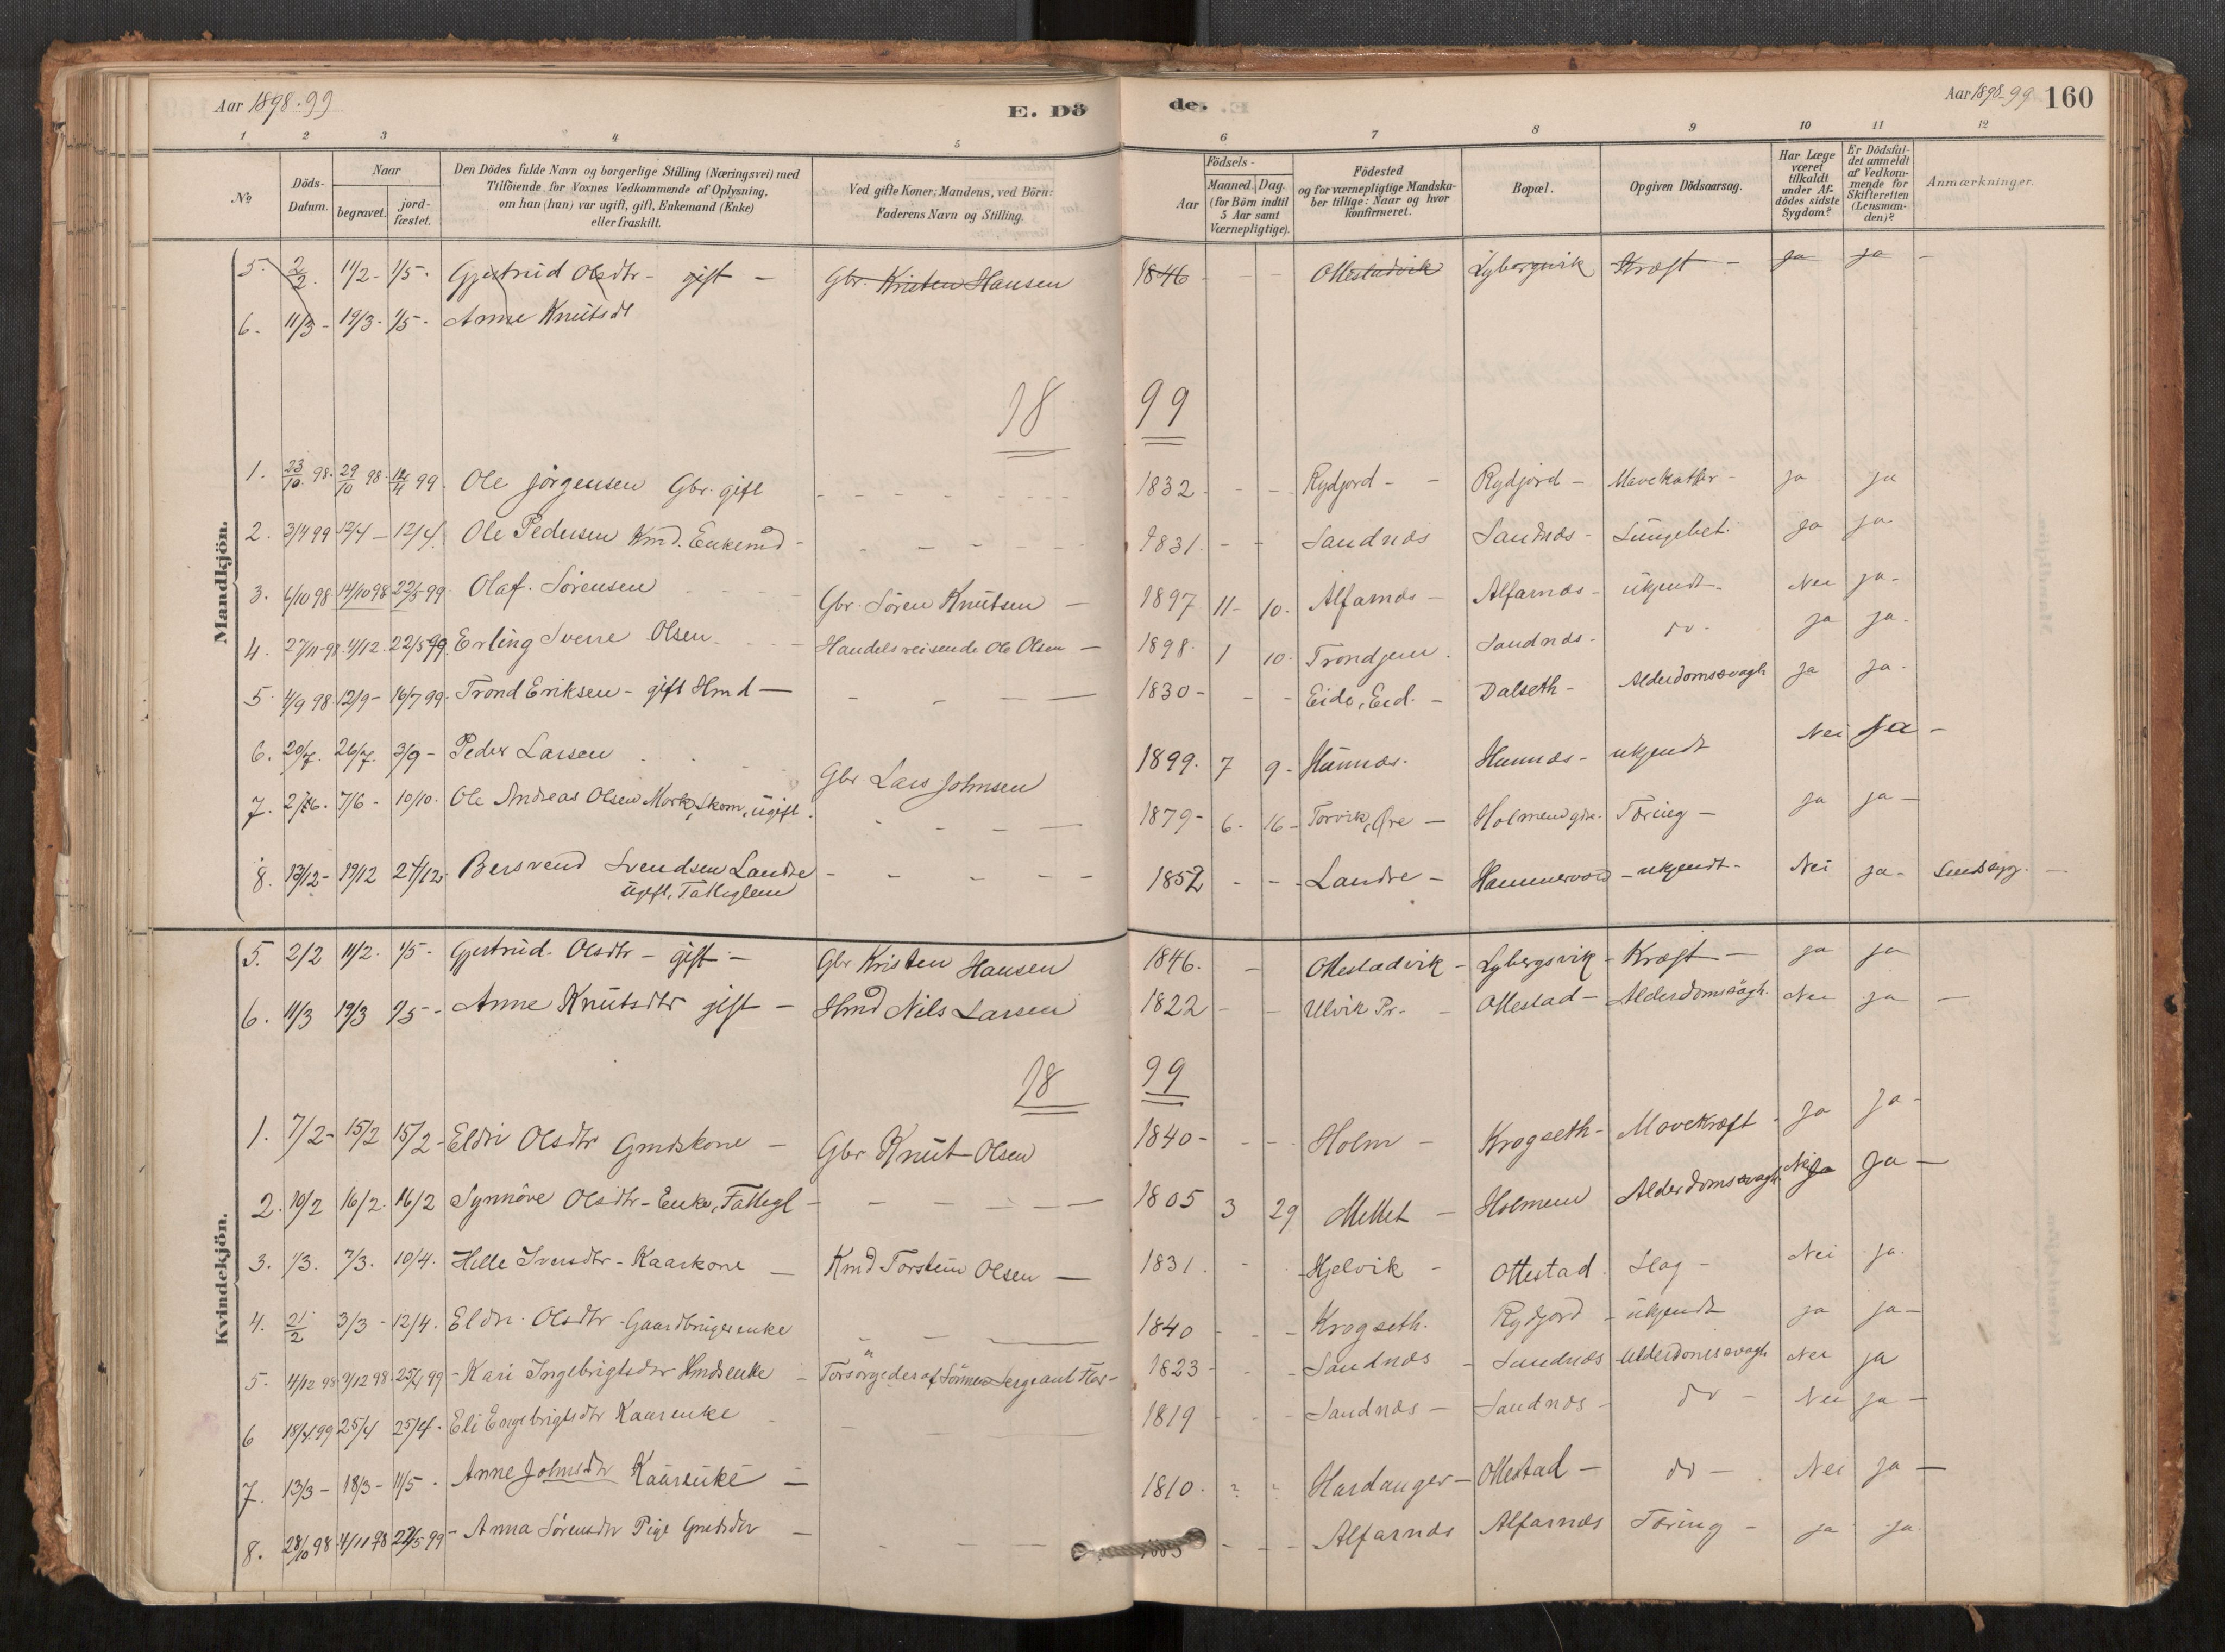 Aar 1898-99
E. Dö
de.
Aar 1898-99
160
1 2 3 4 5 6 7 8 9 10 11 12
No
Döds-Datum.
Naar
begravet.
jord-fæstet.
Den Dödes fulde Navn og borgerlige Stilling (Næringsvei) med
Tilföiende for Voxnes Vedkommende af Oplysning,
om han (hun) var ugift, gift, Enkemand (Enke)
eller fraskilt.
Ved gifte Koner: Mandens, ved Börn:
Faderens Navn og Stilling.
Födsels-
Aar
Maaned. Dag.
(for Börn indtil
5 Aar samt
Værnepligtige).
Födested
og for værnepligtige Mandska-
ber tillige: Naar og hvor
konfirmeret.
Bopæl.
Opgiven Dödsaarsag.
Har Læge
været
tilkaldt
under Af-
dödes sidste
Sygdom?
Er Dödsfal-
det anmeldt
af Vedkom-
mende for
Skifteretten
(Lensman-
den)?
Anmærkninger.
5. 2/2. 11/2 - 1/5. Gjertrud Olsdtr - gift - Gbr. Kristen Hansen 1846 - - - Ottestadvik Lybergsvik Kræft - ja ja -
6. 11/3 - 19/3. 1/5. Anne Knutsdt
18 99
Mandkjön.
1. 23/10 98. 29/10 98. 12/4 99. Ole Jörgensen Gbr. gift 1832. - - Rydjord - Rydjord - Mavekathar - ja ja
2. 3/4 99 12/4 - 12/4. Ole Pedersen Kmd. Enkemd - 1831. - - Sandnæs Sandnæs - Lungebet. ja ja
3. 6/10 98 14/10 98 22/5 99. Olaf Sörensen Gbr. Sören Knutsen - 1897. 11 - 10. Alfarnæs - Alfarnæs - ukjendt - Nei ja -
4. 27/11 98. 4/12. 22/5 99. Erling Sverre Olsen Handelsreisende Ole Olsen - 1898. 1 10. Trondjem. Sandnæs - do - ja ja -
5. 4/9 98. 12/9 - 16/7 99. Trond Eriksen - gift Hmd - 1830 - - - Eide, Eid. - Dalseth - Alderdomssvagh ja ja -
6. 20/7. 26/7. 3/9 - Peder Larsen Gbr Lars Johnsen 1899. 7 9 - Hunnæs. Hunnæs - ukjendt Nei ja -
7. 7/6 - 10/10. Ole Andreas Olsen Mork, Skom, ugift. 1879 - 6. 16 - Torvik, Öre - Tæring - ja ja -
8. 13/12 - 19/12 27/12. Bersvend Svendsen Landre 1852 - - - Landre - - ukjendt - Nei ja - Sindssyg. -
ugift, Fattiglem
Kvindekjön.
5. 2/2 11/2. 1/5. Gjertrud Olsdtr - gift - Gbr Kristen Hansen 1846. - Ottestadvik - Lybergsvik - Kræft - ja ja
6. 11/3 19/3 1/5 - Anne Knutsdtr gift - Hmd Nils Larsen 1822 - - Ulvik Pr. - Ottestad - Alderdomssvagh. Nei ja -
18 99
1. 7/2 - 15/2 15/2 - Eldri Olsdtr Gmdskone - Gbr Knut Olsen 1840 - - - Holm - Krogseth - Mavekræft - ja ja -
2. 10/2 16/2. 16/2 Synnöve Olsdtr - Enke, Fattigl - 1805 3 29 Mittet - Holmem Alderdomssvagh Nei ja -
3. 1/3. 7/3. 10/4. Helle Iversdtr - Kaarkone - Kmd Torstein Olsen - 1831. - Hjelvik - Ottestad. Slag - Nei ja.
4. 21/2 3/3 - 12/4. Eldri Olsdtr - Gaardbrugerenke 1840 - - - Krogseth. Rydjord - ukjendt ja ja -
5. 4/12 98. 9/12 98. 25/4 99 - Kari Ingebrigtsdtr Hmdsenke - Forsörgedes af Sönnen Sergeant 1823 - - - Sandnæs - Sandnæs Alderdomssvagh Nei ja
6 18/4 99 25/4 25/4. Eli Engebrigtsdtr Kaarenke 1819 - - - Sandnæs - Sandnæs - do - Nei ja -
7. 13/3 - 18/3 - 1/5. Anne Johnsdtr Kaarenke - 1810. ? ? Hardanger - Ottestad - do - Nei ja -
8. 28/10 98 4/11 98 22/5 99 - Anna Sörensdtr Pige Gmdsdtr - - - - Alfarnæs Alfarnæs Tæring - ja ja